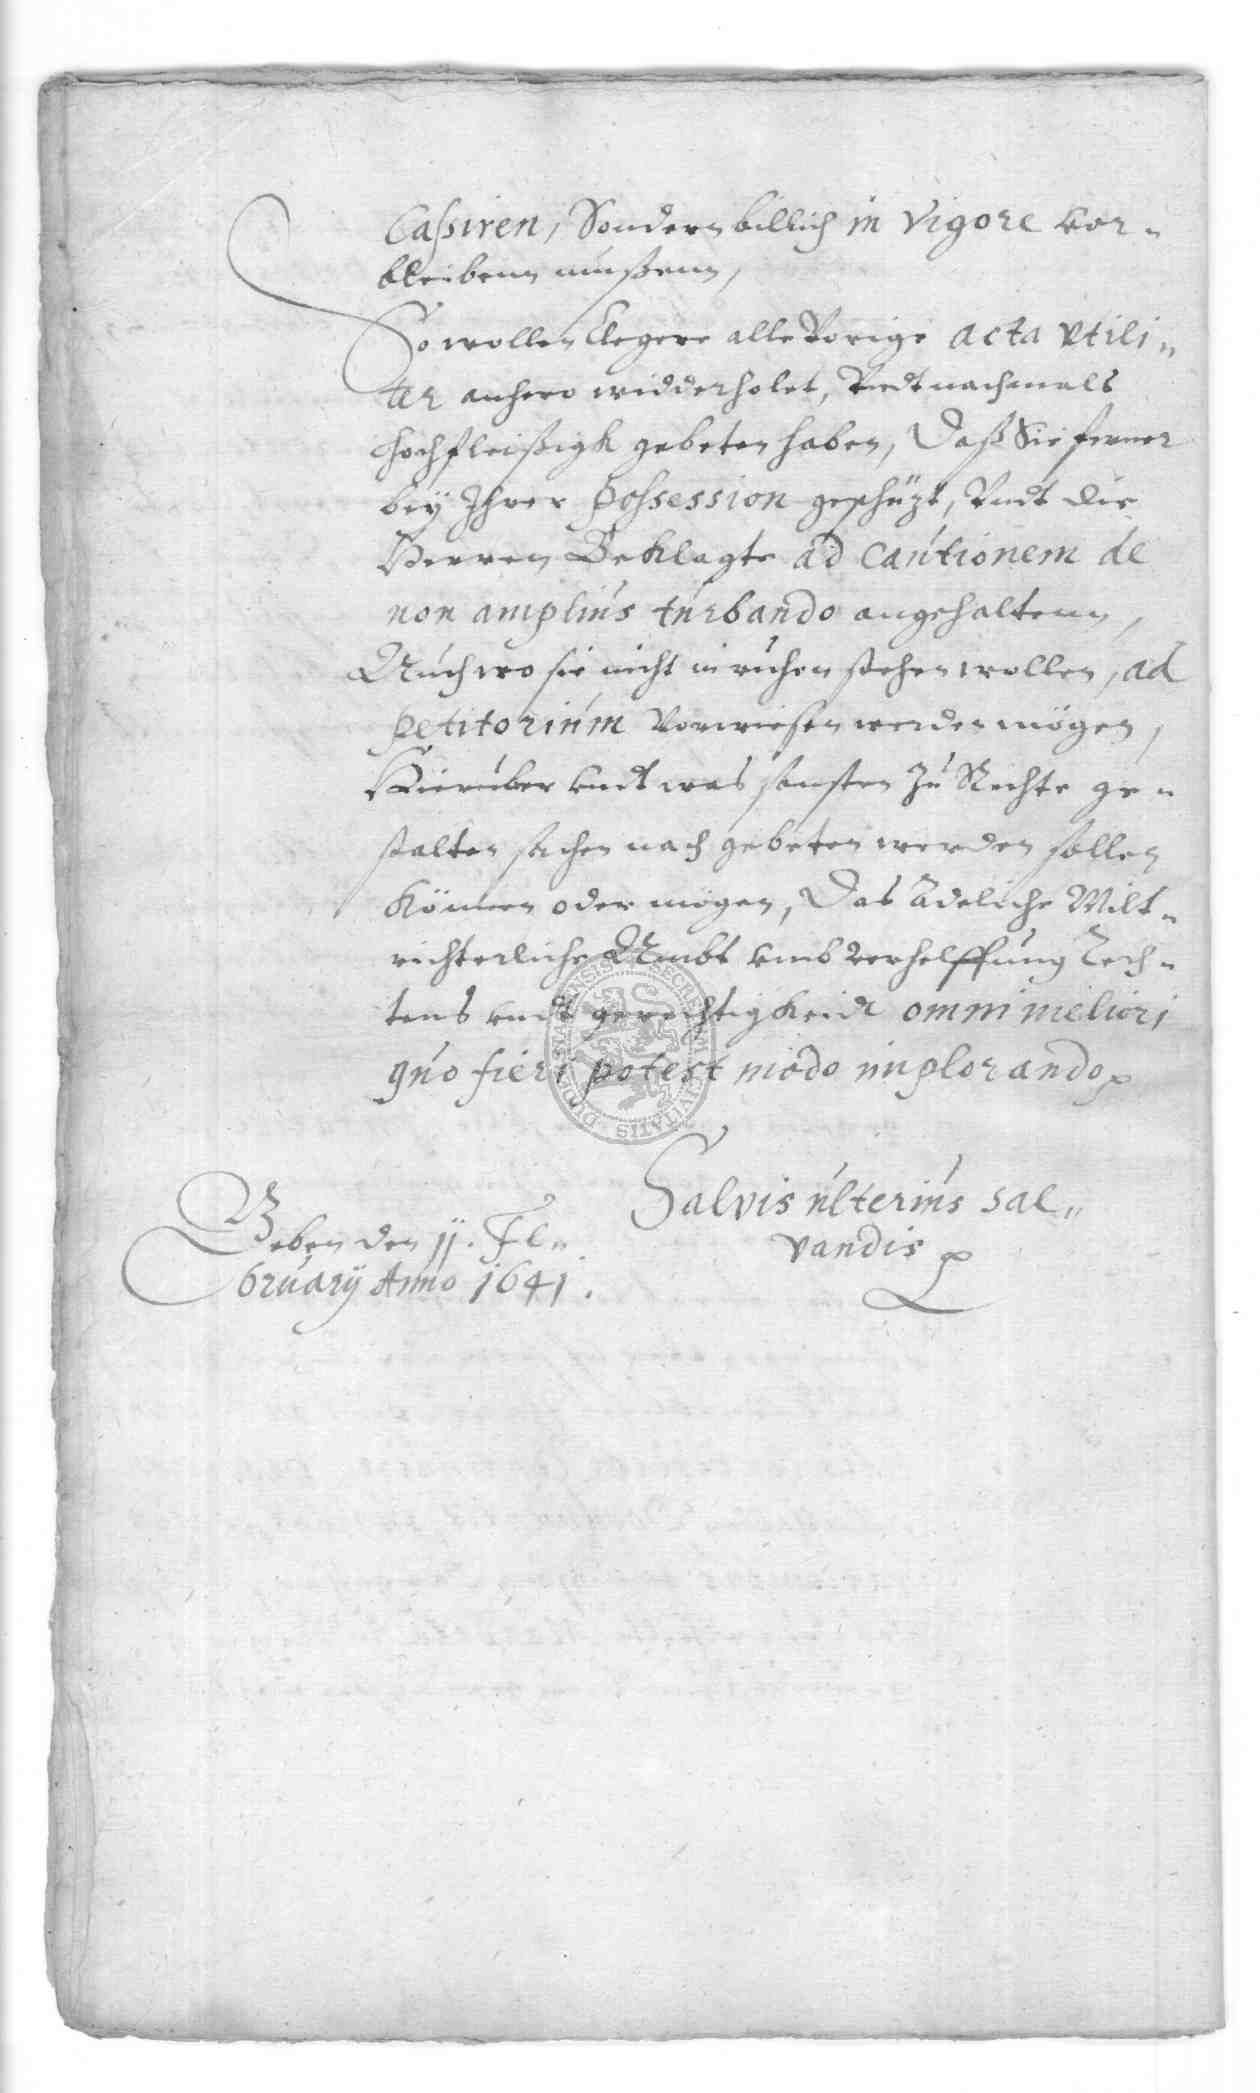 Caßiren, Sondern billich in Vigore vor-
bleibenn mußenn,
So wollen Clegere alle Vorige acta utili-
ter anhero widderholet, Vndt nachmals
hochfleißigk gebeten haben, Daß Sie ferner
bey Ihrer possession geschützt, Vndt die
Herren Beklagte ad Cautionem de
non amplius turbando angehaltenn,
Auch wo sie nicht in ruhen stehen wollen, ad
petitorium Vorwiesen werden mögen,
Hierüber vndt was sonsten Zu Rechte ge-
stalten sachen nach gebeten werden sollen
können oder mögen, Das Adeliche Milt-
richterliche Ambt vmb verhelffung Rech-
tens vndt gerechtigkeidt omni meliori
quo fieri potest modo implorando
Salvis ulterius sal-
vandis
Geben den 11. Fe-
bruarÿ Anno 1641.